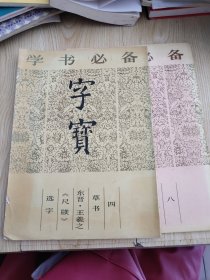 学书必备
必备
字寶
四
草书
东晋·王羲之
《尺牍》
选字
八